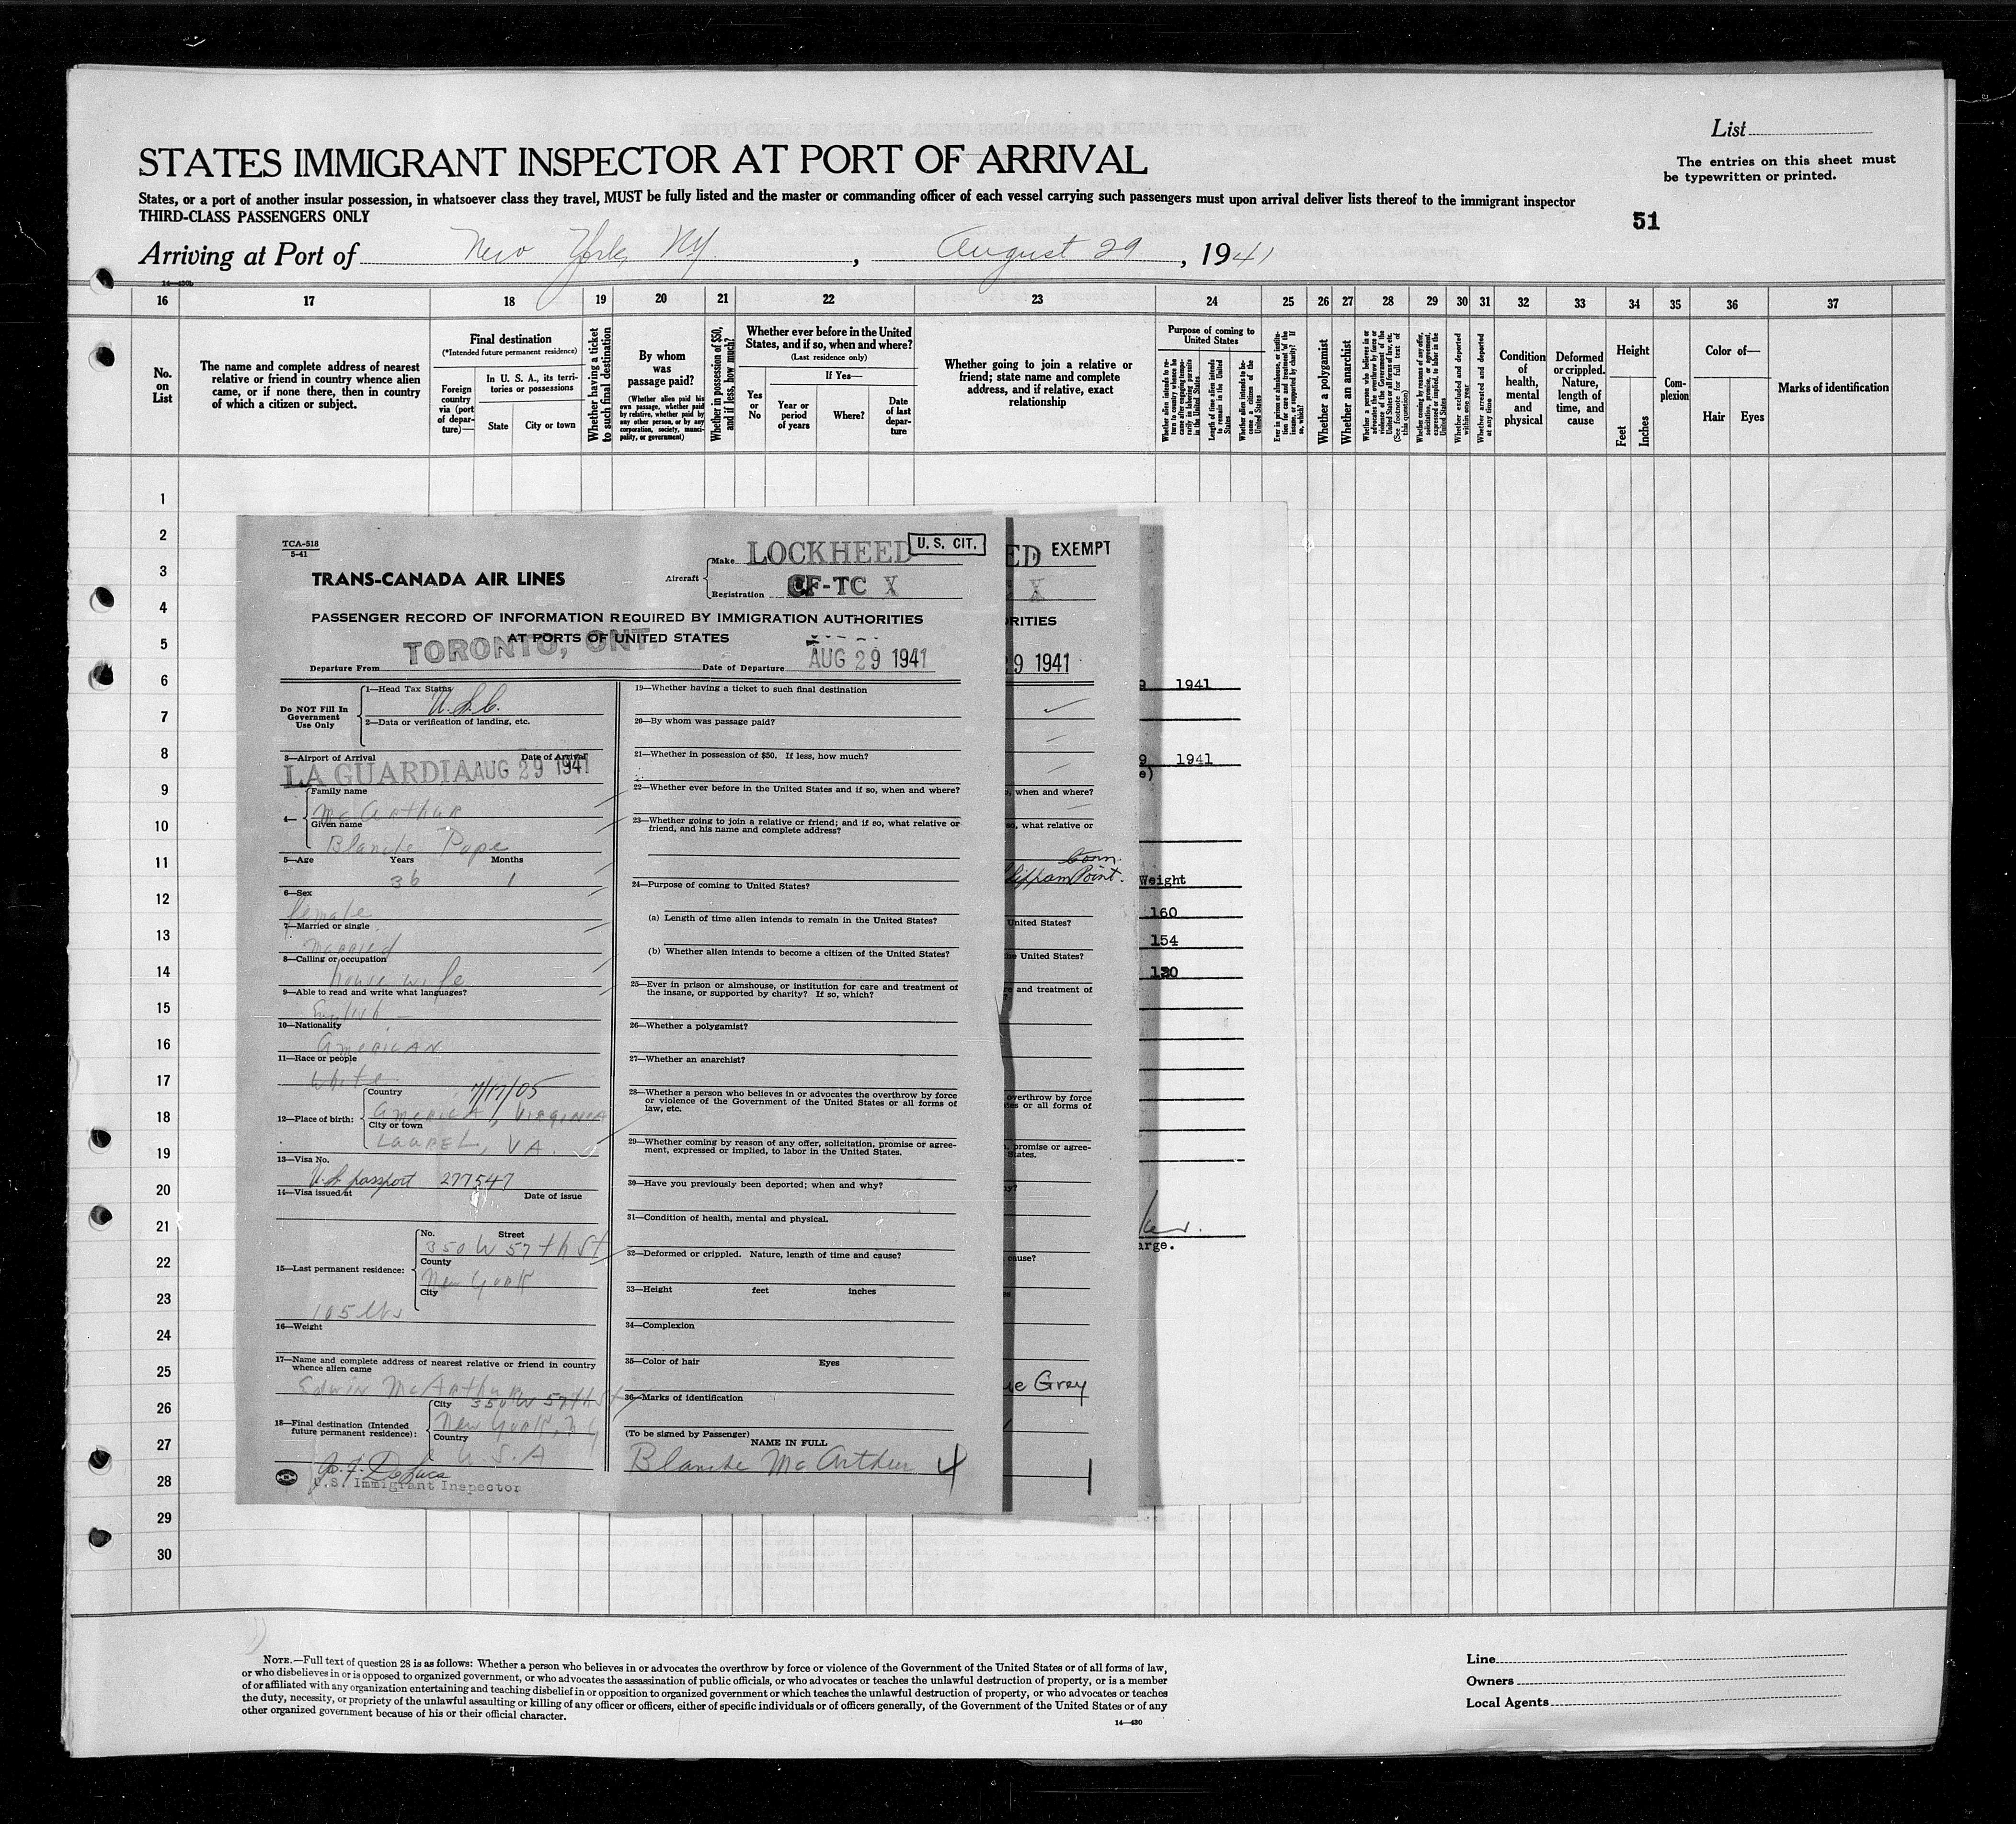 List
The entries on this sheet must
be typewritten or printed.
STATES IMMIGRANT INSPECTOR AT PORT OF ARRIVAL
States, or a port of another insular possession, in whatsoever class they travel, MUST be fully listed and the master or commanding officer of each vessel carrying such passengers must upon arrival deliver lists thereof to the immigrant inspector
THIRD-CLASS PASSENGERS ONLY
51
Arriving at Port of New York, NY. , August 29 , 1941
14—430b
16 17 18 19 20 21 22 23 24 25 26 27 28 29 30 31 32 33 34 35 36 37
No.
on
List
The name and complete address of nearest
relative or friend in country whence alien
came, or if none there, then in country
of which a citizen or subject.
Final destination
(*Intended future permanent residence)
Foreign
country
via (port
of depar-
ture)—
In U. S. A., its terri-
tories or possessions
State
City or town
Whether having a ticket
to such final destination
By whom
was
passage paid?
(Whether alien paid his
own passage, whether paid
by relative, whether paid by
any other person, or by any
corporation, society, munici-
pality, or government)
Whether in possession of $50,
and if less, how much?
Whether ever before in the United
States, and if so, when and where?
(Last residence only)
Yes
or
No
If Yes—
Year or
period
of years
Where?
Date
of last
depar-
ture
Whether going to join a relative or
friend; state name and complete
address, and if relative, exact
relationship
Purpose of coming to
United States
Whether alien intends to re-
turn to country whence he
came after engaging tempo-
rarily in laboring pursuits
in the United States
Length of time alien intends
to remain in the United
States
Whether alien intends to be-
come a citizen of the
United States
Ever in prison or almshouse, or institu-
tion for care and treatment of the
insane, or supported by charity? If
so, which?
Whether a polygamist
Whether an anarchist
Whether a person who believes in or
advocates the overthrow by force or
violence of the Government of the
United States or all forms of law, etc.
(See footnote for full text of
this question)
Whether coming by reason of any offer,
solicitation, promise, or agreement,
expressed or implied, to labor in the
United States
Whether excluded and deported
within one year
Whether arrested and deported
at any time
Condition
of
health,
mental
and
physical
Deformed
or crippled.
Nature,
length of
time, and
cause
Height
Feet
Inches
Com-
plexion
Color of—
Hair
Eyes
Marks of identification
1
2
3
4
5
6
7
8
9
10
11
12
13
14
15
16
17
18
19
20
21
22
23
24
25
26
27
28
29
30
TCA-518
5-41
TRANS-CANADA AIR LINES
Aircraft
Make LOCKHEED
U. S. CIT.
Registration CF-TC X
PASSENGER RECORD OF INFORMATION REQUIRED BY IMMIGRATION AUTHORITIES
AT PORTS OF UNITED STATES
Departure From TORONTO, ONT. Date of Departure AUG 29 1941
Do NOT Fill In
Government
Use Only
1—Head Tax Status U.S.C.
2—Data or verification of landing, etc.
3—Airport of Arrival Date of Arrival
LA GUARDIA AUG 29 1941
4—
Family name
McArthur
Given name
Blanche Pope
5—Age Years Months
36 1
6—Sex
female
7—Married or single
married
8—Calling or occupation
housewife
9—Able to read and write what languages?
English —
10—Nationality
American
11—Race or people
white
7/17/05
12—Place of birth:
Country
America, Virginia
City or town
Laurel, VA.
13—Visa No.
U.S. passport 277547
14—Visa issued at Date of issue
15—Last permanent residence:
No. Street
350 W 57th St
County
New York
City
105 lbs
16—Weight
17—Name and complete address of nearest relative or friend in country
whence alien came
Edwin McArthur
350 W 57th St
18—Final destination (Intended
future permanent residence):
City
New York, N Y
Country
U S.A
U.S. Immigrant Inspector
19—Whether having a ticket to such final destination
20—By whom was passage paid?
21—Whether in possession of $50. If less, how much?
22—Whether ever before in the United States and if so, when and where?
23—Whether going to join a relative or friend; and if so, what relative or
friend, and his name and complete address?
24—Purpose of coming to United States?
(a) Length of time alien intends to remain in the United States?
(b) Whether alien intends to become a citizen of the United States?
25—Ever in prison or almshouse, or institution for care and treatment of
the insane, or supported by charity? If so, which?
26—Whether a polygamist?
27—Whether an anarchist?
28—Whether a person who believes in or advocates the overthrow by force
or violence of the Government of the United States or all forms of
law, etc.
29—Whether coming by reason of any offer, solicitation, promise or agree-
ment, expressed or implied, to labor in the United States.
30—Have you previously been deported; when and why?
31—Condition of health, mental and physical.
32—Deformed or crippled. Nature, length of time and cause?
33—Height feet inches
34—Complexion
35—Color of hair Eyes
36—Marks of identification
(To be signed by Passenger)
NAME IN FULL
Blanche McArthur 4
ED EXEMPT
X
RITIES
9 1941
, when and where?
so, what relative or
Conn.
Point.
United States?
he United States?
re and treatment of
overthrow by force
es or all forms of
, promise or agree-
States.
y?
cause?
es
ue Grey
1
9 1941
9 1941
e)
Weight
160
154
130
arge.
NOTE.—Full text of question 28 is as follows: Whether a person who believes in or advocates the overthrow by force or violence of the Government of the United States or of all forms of law,
or who disbelieves in or is opposed to organized government, or who advocates the assassination of public officials, or who advocates or teaches the unlawful destruction of property, or is a member
of or affiliated with any organization entertaining and teaching disbelief in or opposition to organized government or which teaches the unlawful destruction of property, or who advocates or teaches
the duty, necessity, or propriety of the unlawful assaulting or killing of any officer or officers, either of specific individuals or of officers generally, of the Government of the United States or of any
other organized government because of his or their official character.
14—430
Line
Owners
Local Agents